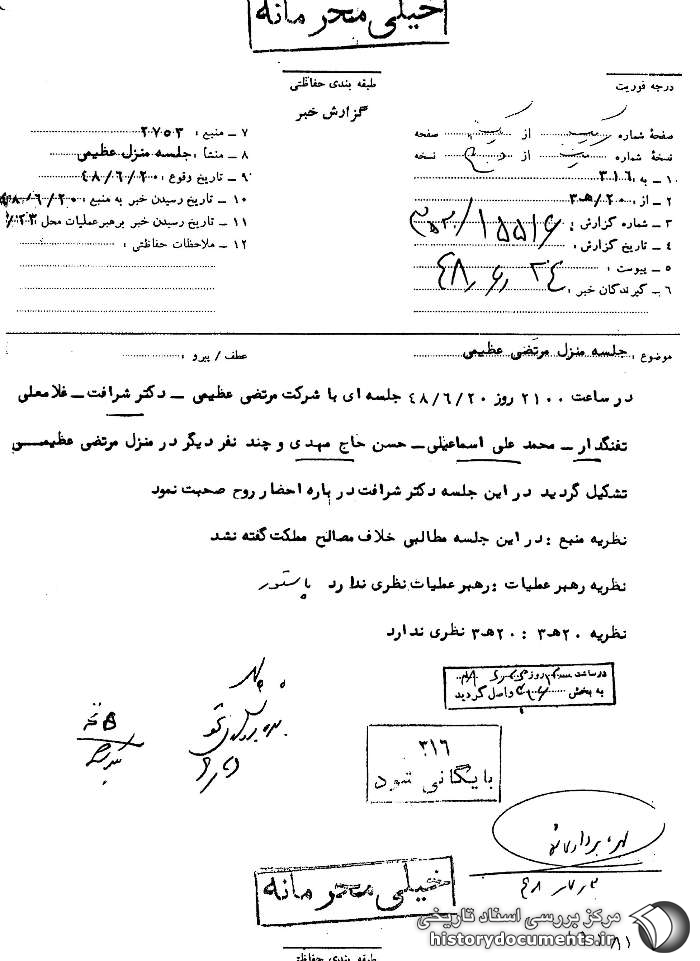 خیلی محرمانه
درجه فوریت
طبقه بندی حفاظتی
گزارش خبر
صفحهٔ شماره یک از یک صفحه
نسخهٔ شماره از نسخه
۱ ـ به : ۳۱۶
۲ ـ از : ۲۰/ هـ ۳
۳ ـ شماره گزارش : ۱۵۵۱۶/
۴ ـ تاریخ گزارش : ۴۸٫۶٫۲۴
۵ ـ پیوست :
۶ ـ گیرندگان خبر :
۷ ـ منبع : ۲۷۵۳
۸ ـ منشأ : جلسه منزل عظیمی
۹ ـ تاریخ وقوع : ۴۸/۶/۲۰
۱۰ ـ تاریخ رسیدن خبر به منبع : ۴۸/۶/۲۰
۱۱ ـ تاریخ رسیدن خبر برهبر عملیات محل : /۲۳
۱۲ ـ ملاحظات حفاظتی :
موضوع : جلسه منزل مرتضی عظیمی
عطف / پیرو :
در ساعت ۲۱۰۰ روز ۴۸/۶/۲۰ جلسه ای با شرکت مرتضی عظیمی ـ دکتر شرافت ـ غلامعلی
تفنگدار ـ محمد علی اسماعیلی ـ حسن حاج مهدی و چند نفر دیگر در منزل مرتضی عظیمی
تشکیل گردید در این جلسه دکتر شرافت در باره احضار روح صحبت نمود
نظریه منبع : در این جلسه مطالبی خلاف مصالح مملکت گفته نشد
نظریه رهبر عملیات : رهبر عملیات نظری ندارد پاستور
نظریه ۲۰هـ۳ : ۲۰هـ۳ نظری ندارد
در ساعت روز
به بخش واصل گردید
۳۱۶
بایگانی شود
خیلی محرمانه
مرکز بررسی اسناد تاریخی
historydocuments.ir
طبقه بندی حفاظتی